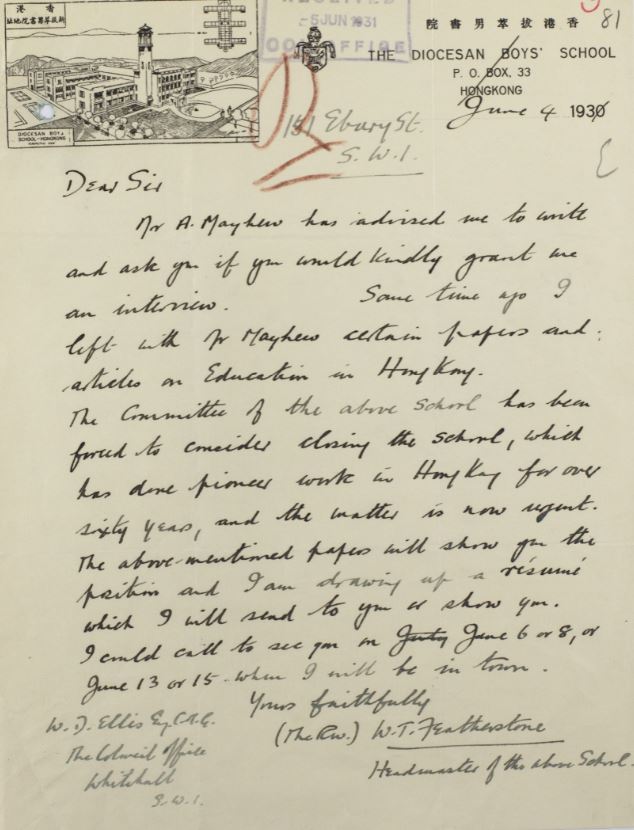 香港
新拔萃男書院地址
DIOCESAN BOYS
SCHOOL-HONGKONG
RECEIVED
-5 JUN 1931
COL. OFFICE
香港拔萃男書院
81
THE DIOCESAN BOYS' SCHOOL
P. O. BOX, 33
HONGKONG
June 4 1930
151 Ebury St.
S.W.1.
Dear Sir
Mr A. Mayhew has advised me to write
and ask you if you would kindly grant me
an interview. Some time ago I
left with Mr Mayhew certain papers and
articles on Education in Hong Kong.
The Committee of the above School has been
forced to consider closing the school, which
has done pioneer work in Hong Kong for over
sixty years, and the matter is now urgent.
The above-mentioned papers will show you the
position and I am drawing up a résumé
which I will send to you or show you.
I could call to see you on June 6 or 8, or
June 13 or 15 when I will be in town.
Yours faithfully
(The Rev.) W.T. Featherstone
Headmaster of the above School.
W. D. Ellis Esq C.M.G.
The Colonial Office
Whitehall
S.W.1.